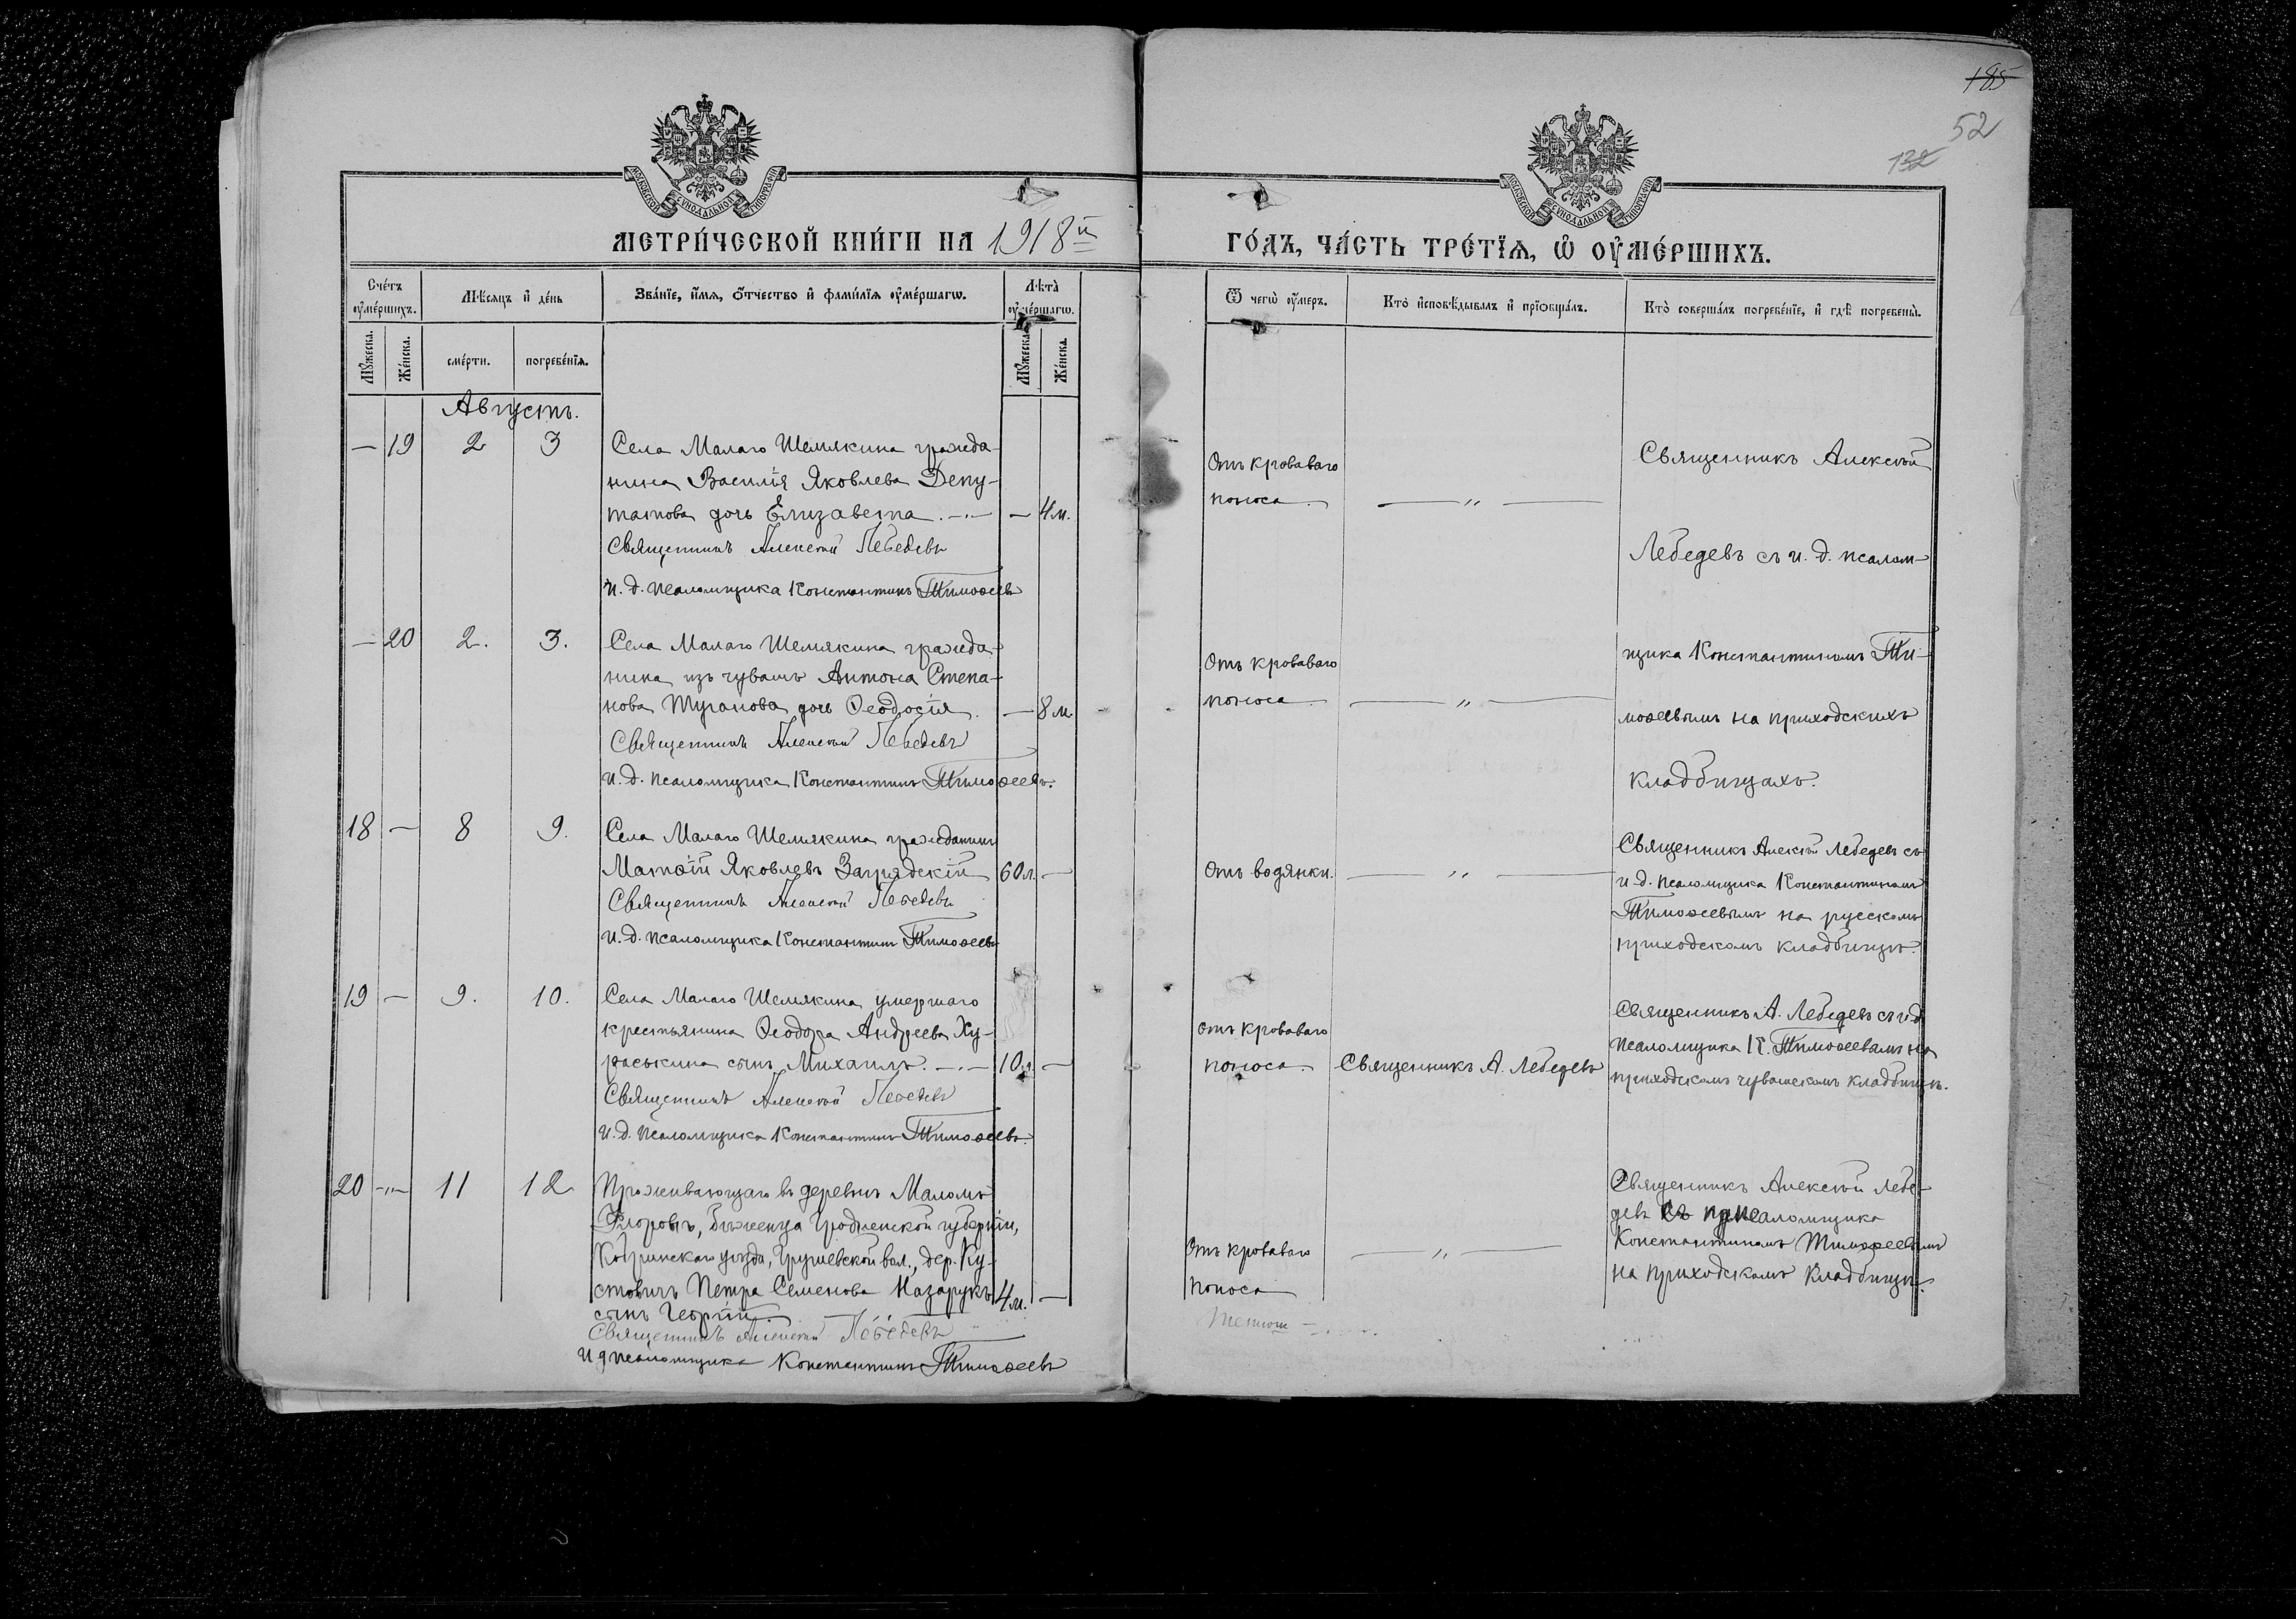 185
52
132
МОСКОВСКОЙ СѴНОДАЛЬНОЙ ТИПОГРАФІИ
МОСКОВСКОЙ СѴНОДАЛЬНОЙ ТИПОГРАФІИ
МЕТРИ́ЧЕСКОЙ КНИ́ГИ НА 1918й
ГО́ДЪ, ЧА́СТЬ ТРЕ́ТЇѦ, Ѡ҆ ОУ҆МЕ́РШИХЪ.
Сче́тъ оу҆ме́ршихъ.
Мѣ́сѧцъ и҆ де́нь
Зва́нїе, и҆́мѧ, ѻ҆́тчество и҆ фами́лїѧ оу҆ме́ршагѡ.
Лѣ́та оу҆ме́ршагѡ.
Ѿ чегѡ̀ оу҆́меръ.
Кто̀ и҆сповѣ́дывалъ и҆ прїѻбща́лъ.
Кто̀ соверша́лъ погребе́нїе, и҆ гдѣ̀ погребены̀.
Мꙋ́жеска.
Же́нска.
сме́рти.
погребе́нїѧ.
Мꙋ́жеска.
Же́нска.
Августъ.
— 19 2 3
Села Малаго Шемякина гражда-
нина Василія Яковлева Депу-
татова дочь Елизавета. — 4 м.
Священникъ Алексій Лебедевъ
И. д. псаломщика Константинъ Тимоѳеевъ
Отъ кроваваго
поноса.
— „ —
Священникъ Алексій
Лебедевъ съ и. д. псалом-
щика Константиномъ Ти-
моѳеевымъ на приходскихъ
кладбищахъ.
— 20 2. 3.
Села Малаго Шемякина гражда-
нина изъ чувашъ Антона Степа-
нова Туганова дочь Ѳеодосія. — 8 м.
Священникъ Алексій Лебедевъ
И. д. псаломщика Константинъ Тимоѳеевъ.
Отъ кроваваго
поноса.
— „ —
18 — 8 9.
Села Малаго Шемякина гражданинъ
Матѳій Яковлевъ Заградскій 60 л. —
Священникъ Алексій Лебедевъ
И. д. псаломщика Константинъ Тимоѳеевъ
Отъ водянки.
— „ —
Священникъ Алексій Лебедевъ съ
и. д. псаломщика Константиномъ
Тимоѳеевымъ на русскомъ
приходскомъ кладбищѣ.
19 — 9. 10.
Села Малаго Шемякина умершаго
крестьянина Ѳеодора Андреева Ху-
раськина сынъ Михаилъ. 10 л. —
Священникъ Алексій Лебедевъ
И. д. псаломщика Константинъ Тимоѳеевъ.
Отъ кроваваго
поноса
Священникъ А. Лебедевъ
Священникъ А. Лебедевъ съ и д.
псаломщика К. Тимоѳеевымъ на
приходскомъ чувашскомъ кладбищѣ.
20 — 11 12
Проживающаго въ деревнѣ Маломъ
Флоровѣ, бѣженца Гродненской губерніи,
Кобринскаго уѣзда, Грушевской вол., дер. Ку-
стовичъ Петра Семенова Назарукъ 4 м. —
сынъ Георгій.
Священникъ Алексій Лебедевъ
И д псаломщика Константинъ Тимоѳеевъ
Отъ кроваваго
поноса
— „ —
Священникъ Алексій Лебе-
девъ съ псаломщика
Константиномъ Тимоѳеевымъ
на приходскомъ кладбищѣ.